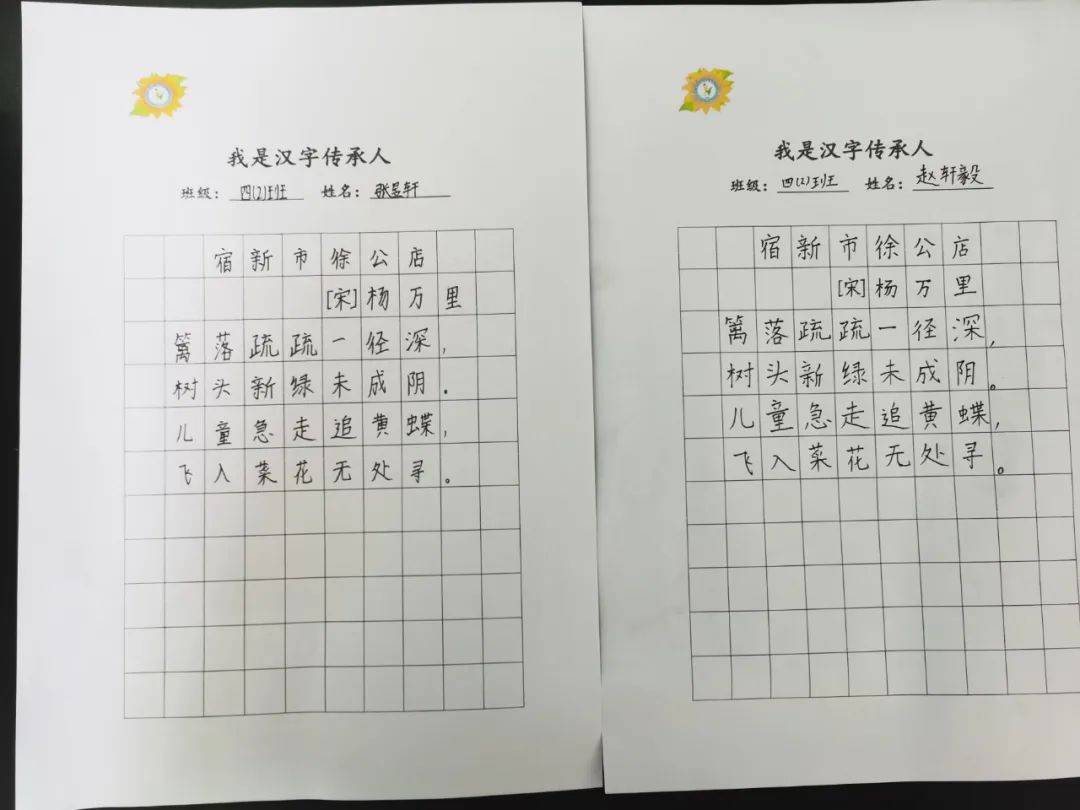 我是汉字传承人
班级：四(2)班 姓名：张昱轩
宿新市徐公店
[宋]杨万里
篱落疏疏一径深，
树头新绿未成阴．
儿童急走追黄蝶，
飞入菜花无处寻。
我是汉字传承人
班级：四(2)班 姓名：赵轩毅
宿新市徐公店
[宋]杨万里
篱落疏疏一径深，
树头新绿未成阴。
儿童急走追黄蝶，
飞入菜花无处寻。